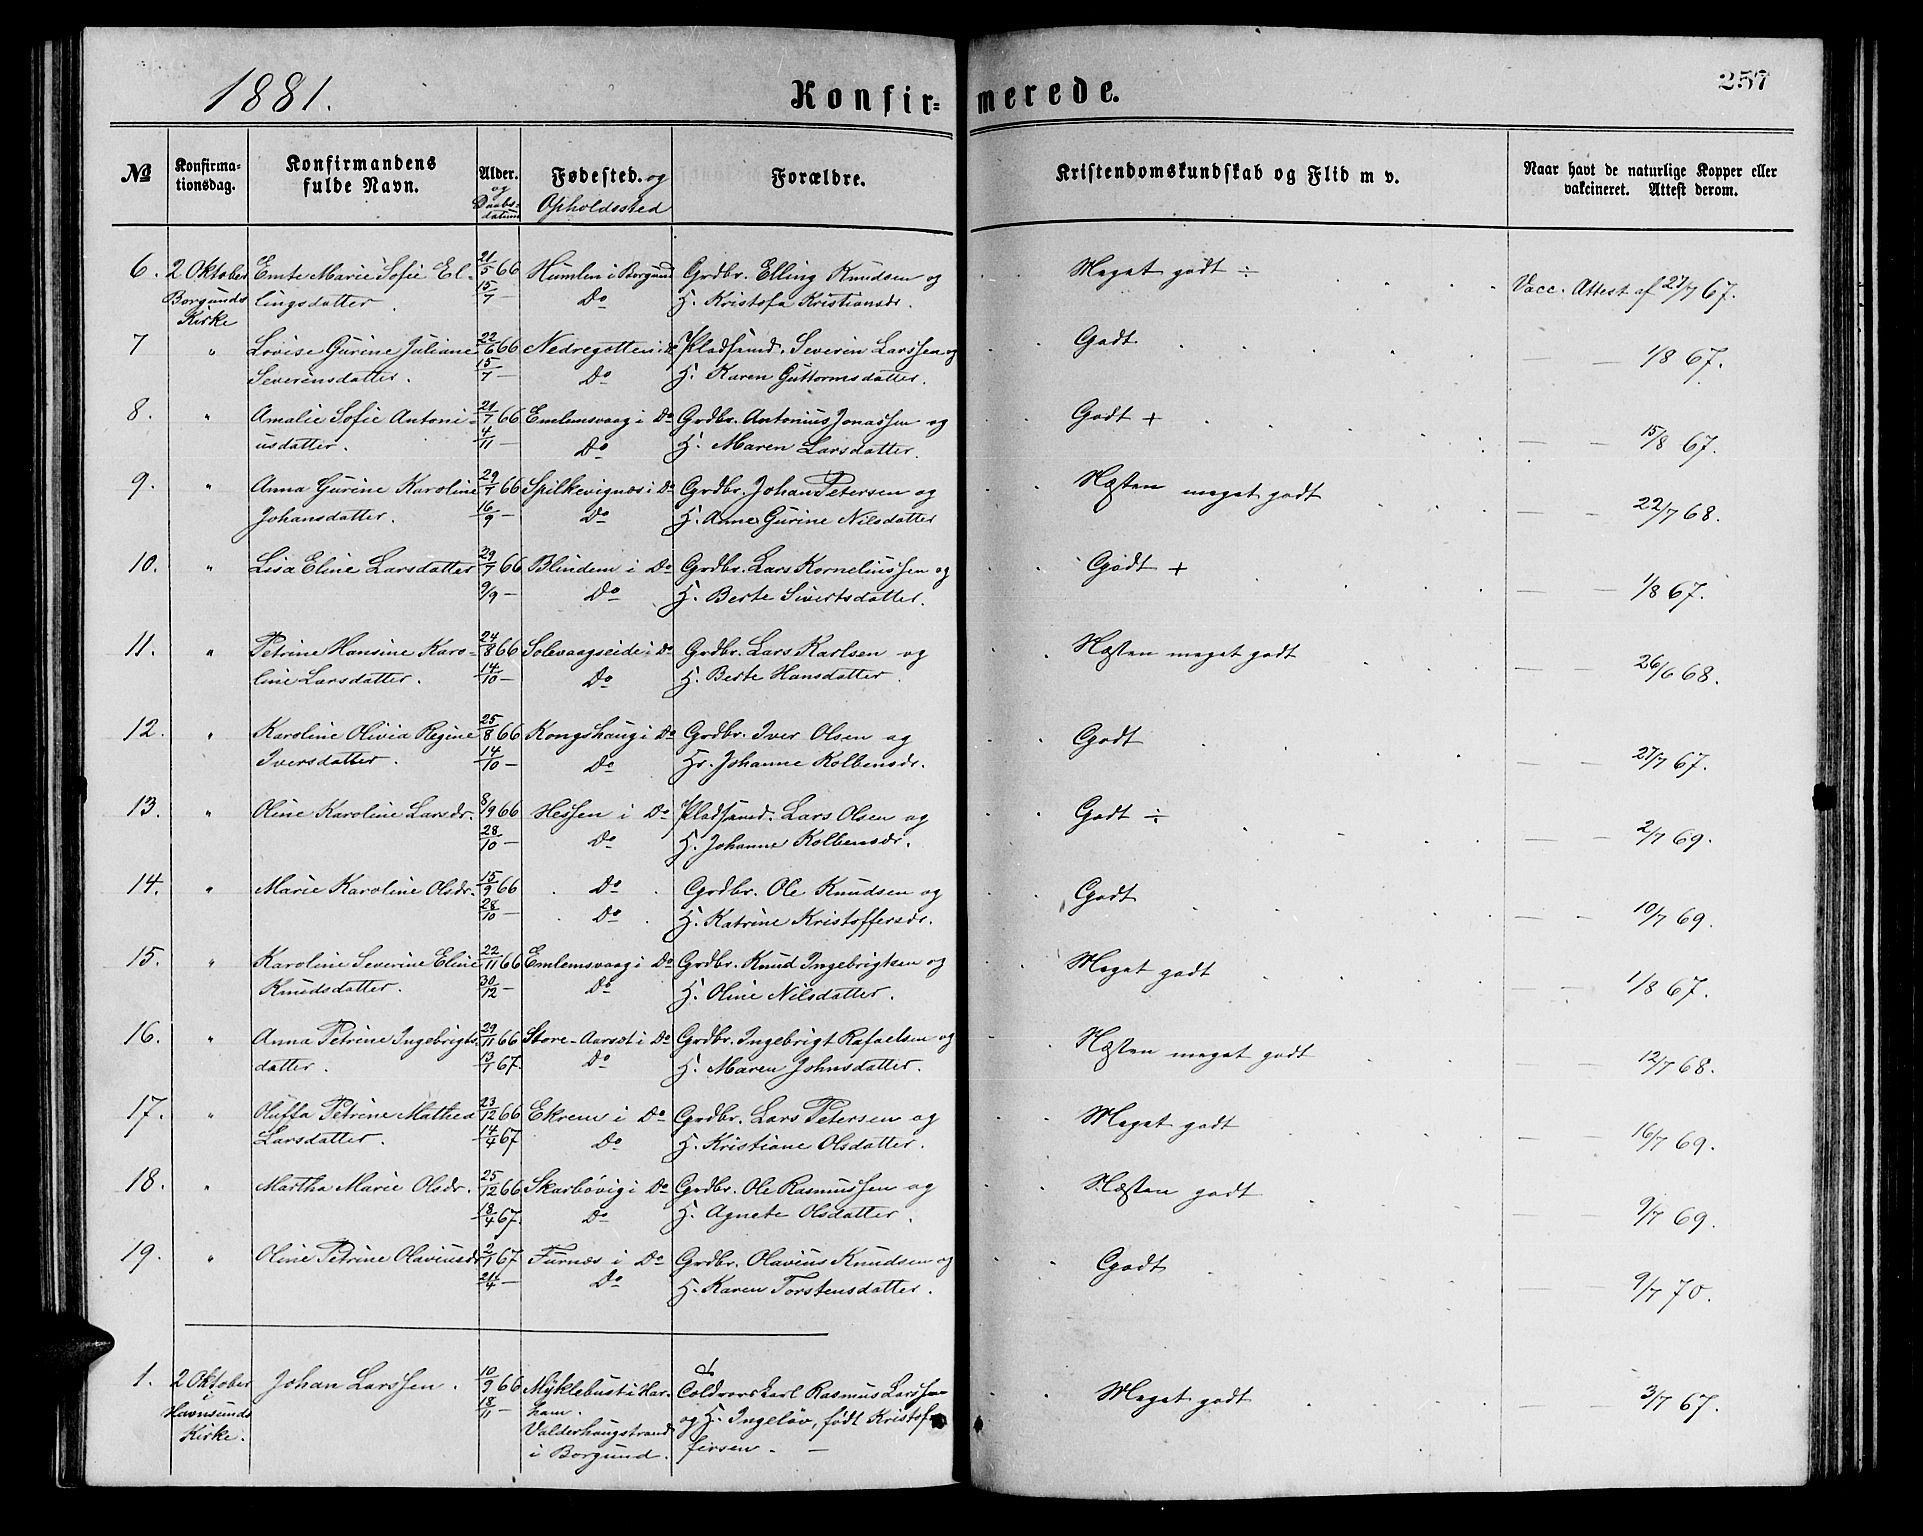 1881.
Konfir- merede.
257
No
Konfirma-
tionsdag.
Konfirmandens
fulde Navn.
Alder.
og
Daabs-
datum
Fødested. og
Opholdssted
Forældre.
Kristendomskundskab og Flid m v.
Naar havt de naturlige Kopper eller
vakcineret. Attest derom.
6. 2 Oktober Emte Marie Sofie El- 21/5 66 Humlen i Borgund Grdbr. Elling Knudsen og Meget godt ÷ Vacc. Attest af 27/7 67.
Borgunds lingsdatter. 15/7 — Do H. Kristofa Kristiansdr.
Kirke
7 " Lovise Gurine Juliane 22/6 66 Nedregotten i Do Pladsmd. Severin Larssen og Godt — — 1/8 67.
Severinsdatter. 15/7 — Do H. Karen Guttormsdatter.
8. " Amalie Sofie Antoni- 21/7 66 Emlemsvaag i Do Grdbr. Antonius Jonassen og Godt + — — 15/8 67.
usdatter. 4/11 — Do H. Maren Larsdatter.
9. " Anna Gurine Karoline 29/7 66 Spilkevignæs i Do Grdbr. Johan Petersen og Næsten meget godt — — 22/7 68.
Johansdatter. 16/9 — Do H. Anne Gurine Nilsdatter
10. " Lisa Eline Larsdatter 29/7 66 Blindem i Do Grdbr. Lars Korneliussen og Godt + — — 1/8 67.
9/9 — Do H. Berte Sivertsdatter.
11. " Petrine Hansine Karo- 24/8 66 Solevaagseide i Do Grdbr. Lars Karlsen og Næsten meget godt — — 26/6 68.
line Larsdatter. 14/10 — Do H. Berte Hansdatter.
12. " Karoline Olivia Regine 25/8 66 Kongshaug i Do Grdbr. Iver Olsen og Godt — — 27/7 67.
Iversdatter. 14/10 — Do Hr. Johanne Kolbensdr.
13. " Oline Karoline Larsdr. 8/9 66 Hessen i Do Pladsmd. Lars Olsen og Godt ÷ — — 2/7 69.
28/10 — Do H. Johanne Kolbensdr.
14. " Marie Karoline Olsdr. 15/9 66 Do Grdbr. Ole Knudsen og Godt — — 10/7 69.
28/10 — Do H. Katrine Kristoffersdr.
15. " Karoline Severine Eline 22/11 66 Emlemsvaag i Do Grdbr. Knud Ingebrigtsen og Meget godt — — 1/8 67.
Knudsdatter. 30/12 — Do H. Oline Nilsdatter.
16. " Anna Petrine Ingebrigts- 29/11 66 Store-Aarset i Do Grdbr. Ingebrigt Rafaelsen og Næsten meget godt — — 12/7 68.
datter. 13/1 67. Do H. Maren Johnsdatter.
17. " Oluffa Petrine Mathea 23/12 66 Ekrem i Do Grdbr. Lars Petersen og Meget godt — — 16/7 69.
Larsdatter. 14/4 67 Do H. Kristiane Olsdatter.
18. " Martha Marie Olsdr. 25/12 66 Skarbøvig i Do Grdbr. Ole Rasmussen og Næsten godt — — 9/7 69.
18/4 67. Do H. Agnete Olsdatter.
19. " Oline Petrine Olaviusdr 2/1 67 Furnæs i Do Grdbr. Olavius Knudsen og Godt — — 9/7 70.
21/4 — Do H. Karen Torstensdatter.
1. 2 Oktober Johan Larssen. 10/9 66 Myklebust i Har- Coldvorskarl Rasmus Larssen Meget godt 3/7 67.
i 18/11 — ham. og H. Ingeløv, født Kristof-
Havnsunds Valderhaugstrand fersen. —
Kirke. i Borgund.